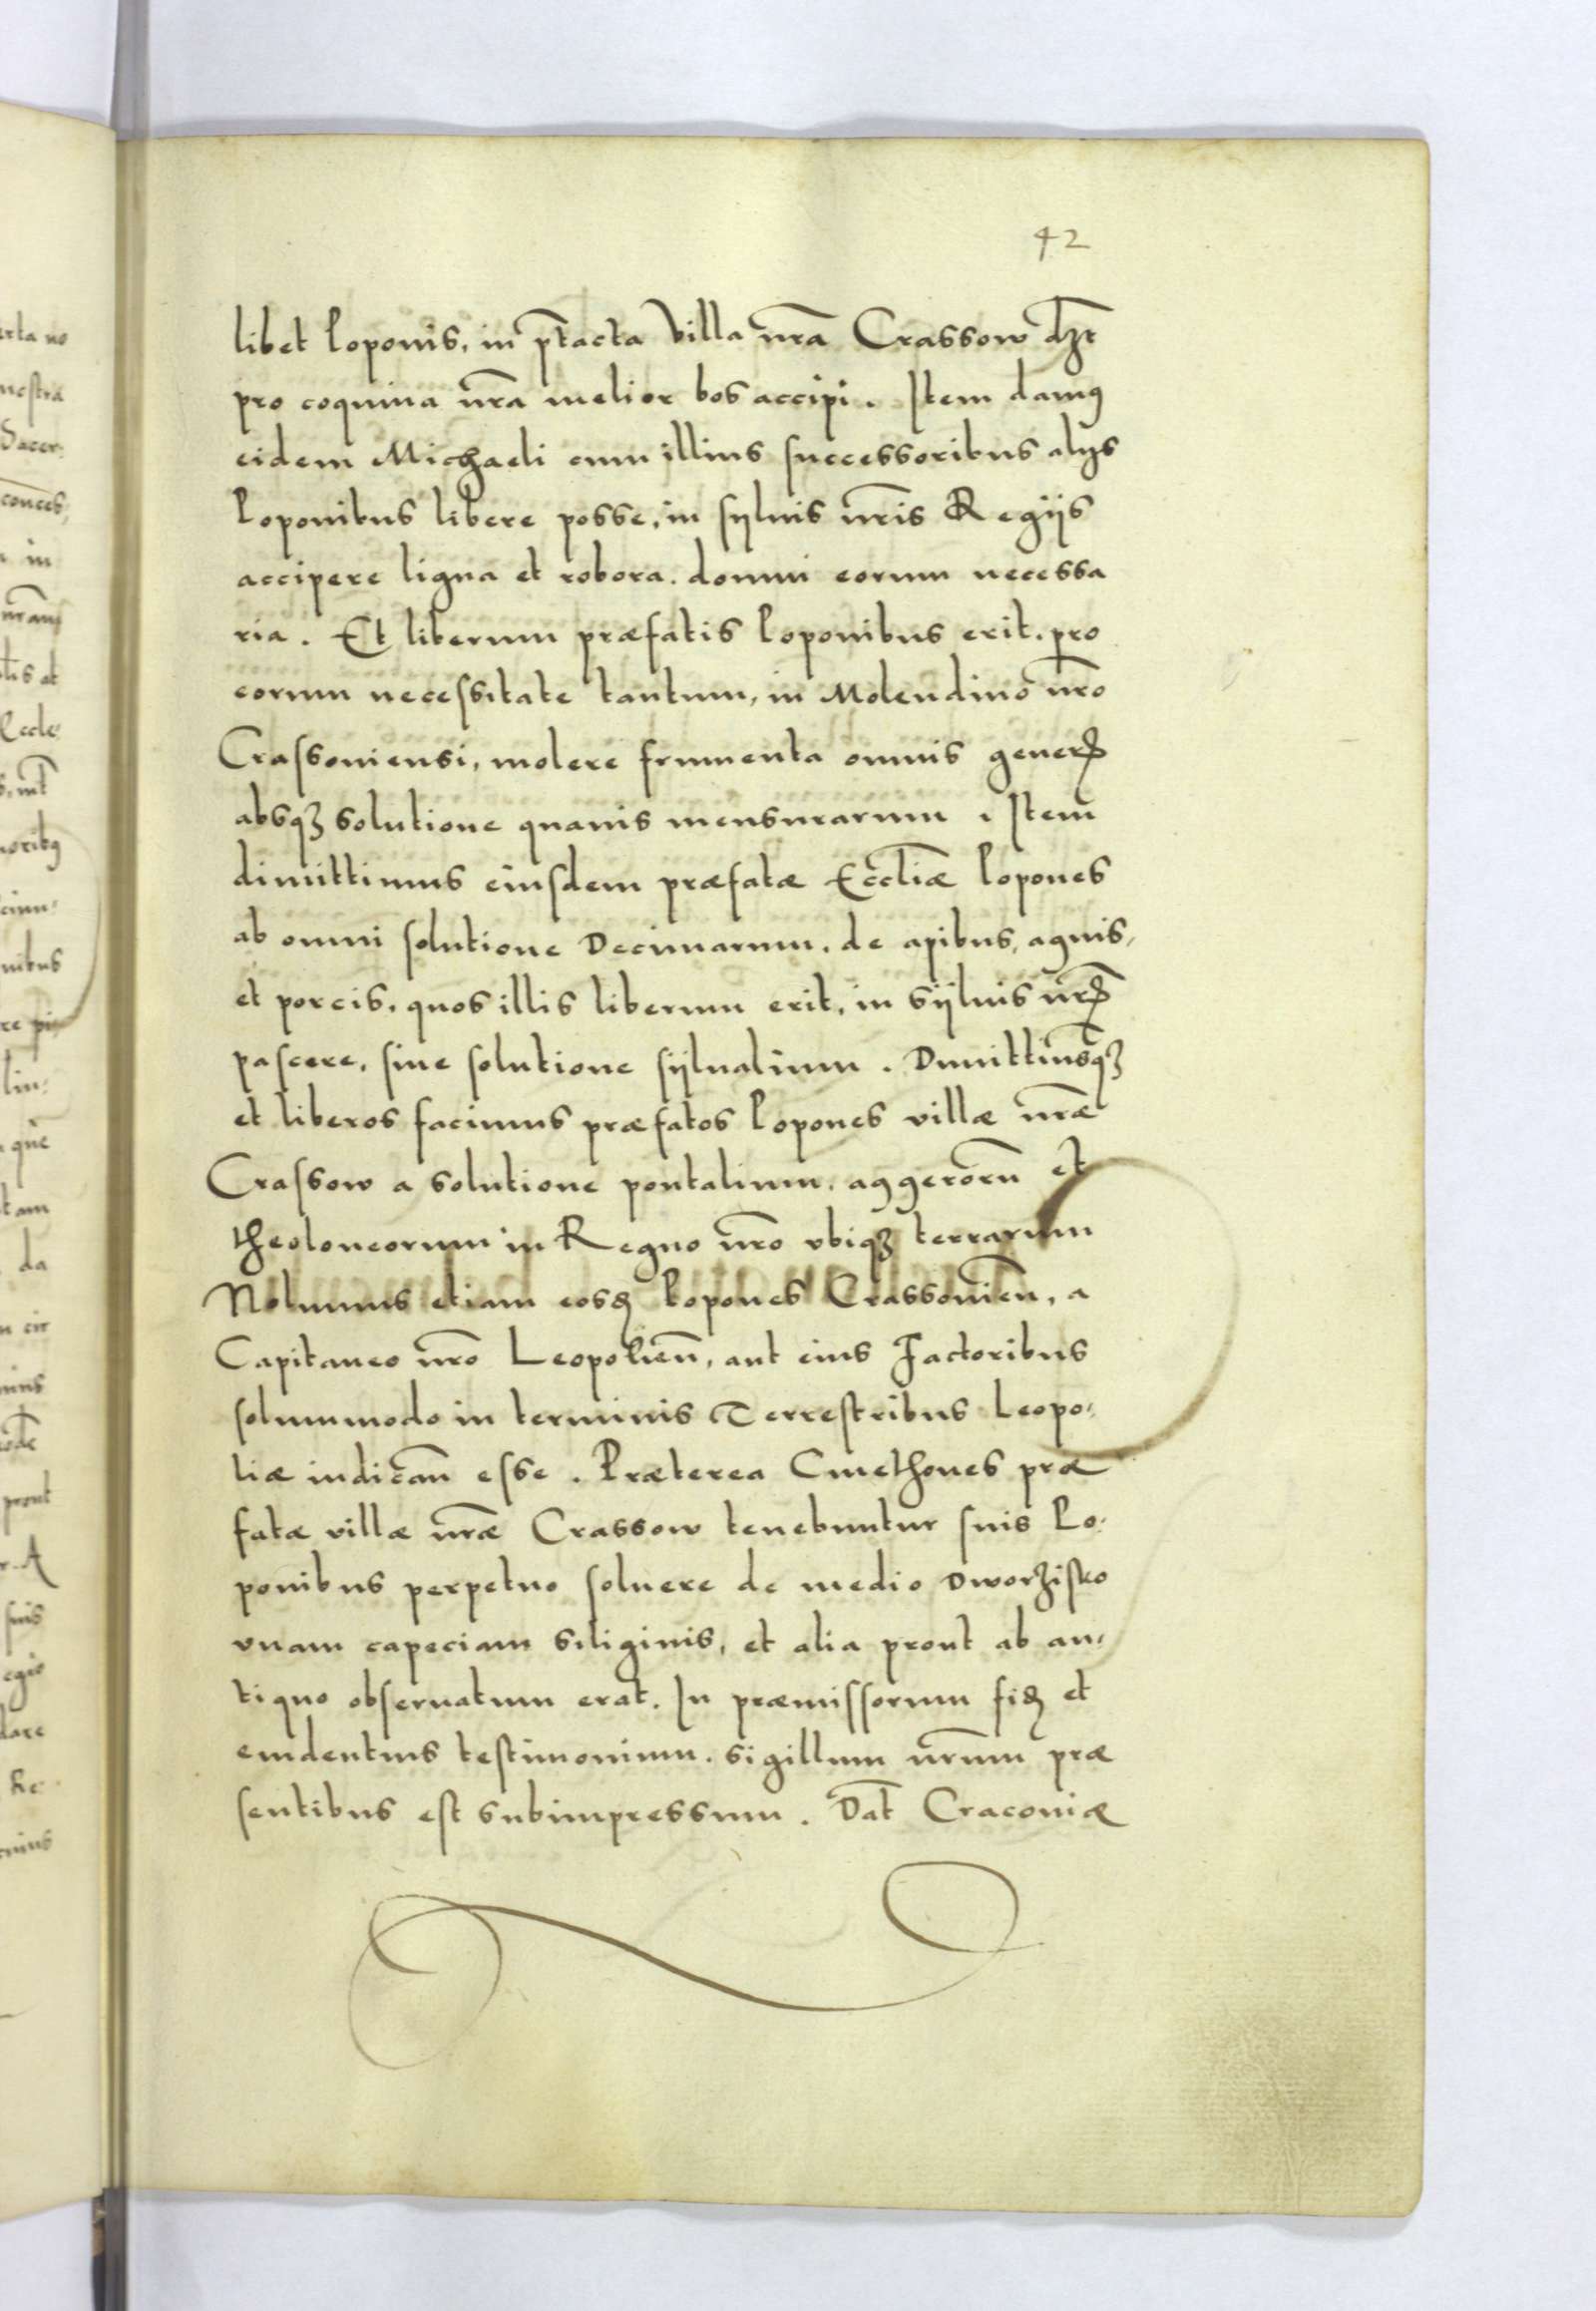 42
libet Poponis, in p̄tacta Villa nr̄a Crassow dꝫr̄
pro coquina nr̄a melior bos accipi. Item damꝰ
eidem Michaeli cum illius successoribus alijs
Poponibus libere posse, in sÿluis nr̄is Regijs
accipere ligna et robora. domui eorum necessa
ria. Et liberum præfatis Poponibus erit. pro
eorum necessitate tantum, in Molendino nr̄o
Crassouiensi, molere frumenta omnis generꝭ
absqꝫ solutione quauis mensurarum. Item
dimittimus eiusdem præfatæ Eccl̄iæ Popones
ab omni solutione Decimarum. de apibus, agnis,
et porcis, quos illis liberum erit, in sÿluis nr̄ꝭ
pascere, siue solutione sÿlualium. Dimittimusqꝫ
et liberos facimus præfatos Popones villæ nr̄æ
Crassow a solutione pontalium. aggerorū et
theoloneorum in Regno nr̄o vbiqꝫ terrarum
Nolumus etiam eosꝺ Popones Crassouień, a
Capitaneo nr̄o Leopolień, aut eius Factoribus
solummodo in terminis Terrestribus Leopo-
liæ iudicań esse. Præterea Cmethones præ
fatæ villæ nr̄æ Crassow tenebuntur suis Po-
ponibus perpetuo soluere de medio Dworzisko
vnam capeciam siliginis, et alia prout ab an-
tiquo obseruatum erat. In præmissorum fiꝺ et
euidentius testimonium. sigillum nr̄um præ
sentibus est subimpressum. Dat̄ Cracouiæ